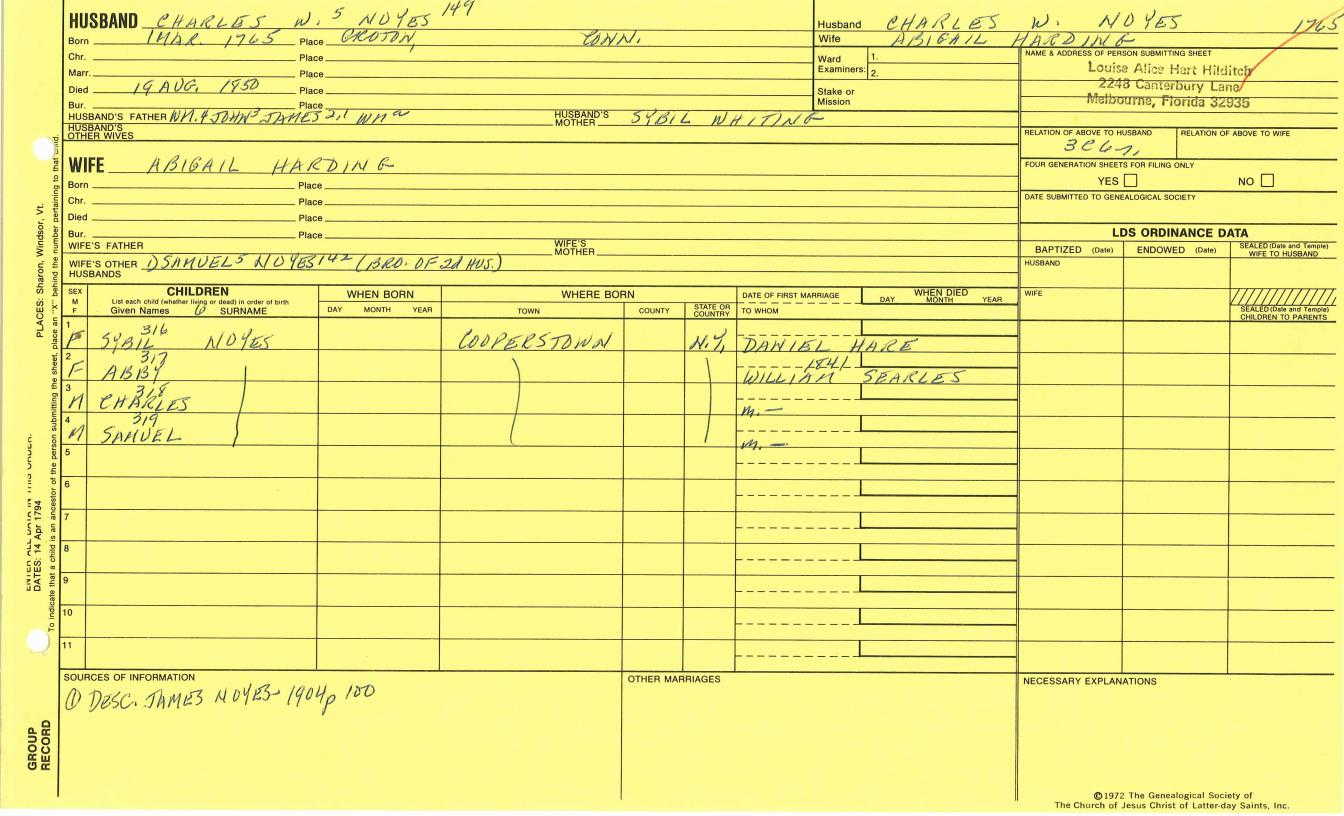 HUSBAND CHARLES W. 5 NOYES 149
Born 1 MAR. 1765 Place GROTON, CONN.
Chr. Place
Marr. Place
Died 19 AUG. 1850 Place
Bur. Place
HUSBAND'S FATHER WM.4 JOHN3 JAMES 2,1 WMa HUSBAND'S MOTHER SYBIL WHITING
HUSBAND'S OTHER WIVES
Husband CHARLES W. NOYES 1765
Wife ABIGAIL HARDING
Ward Examiners: 1.
2.
Stake or Mission
NAME & ADDRESS OF PERSON SUBMITTING SHEET
Louise Alice Hart Hilditch
2248 Canterbury Lane
Melbourne, Florida 32935
RELATION OF ABOVE TO HUSBAND RELATION OF ABOVE TO WIFE
FOUR GENERATION SHEETS FOR FILING ONLY
YES NO
DATE SUBMITTED TO GENEALOGICAL SOCIETY
WIFE ABIGAIL HARDING
Born Place
Chr. Place
Died Place
Bur. Place
WIFE'S FATHER WIFE'S MOTHER
WIFE'S OTHER HUSBANDS 1) SAMUEL5 NOYES 142 (BRO. OF 2d HUS.)
LDS ORDINANCE DATA
BAPTIZED (Date) ENDOWED (Date) SEALED (Date and Temple) WIFE TO HUSBAND
HUSBAND
WIFE
SEALED (Date and Temple) CHILDREN TO PARENTS
SEX M F
CHILDREN
List each child (whether living or dead) in order of birth
Given Names 6 SURNAME
WHEN BORN
DAY MONTH YEAR
WHERE BORN
TOWN COUNTY STATE OR COUNTRY
DATE OF FIRST MARRIAGE
TO WHOM
WHEN DIED
DAY MONTH YEAR
1 316
F SYBIL NOYES COOPERSTOWN N.Y. DANIEL HARE
2 317 1841
F ABBY WILLIAM SEARLES
3 318
M CHARLES m. —
4 319
M SAMUEL m. —
5
6
7
8
9
10
11
SOURCES OF INFORMATION
① DESC. JAMES NOYES- 1904 p 100
OTHER MARRIAGES
NECESSARY EXPLANATIONS
©1972 The Genealogical Society of
The Church of Jesus Christ of Latter-day Saints, Inc.
PLACES: Sharon, Windsor, Vt.
ENTER ALL DATA IN THIS ORDER:
DATES: 14 Apr 1794
To indicate that a child is an ancestor of the person submitting the sheet, place an "X" behind the number pertaining to that child.
GROUP
RECORD